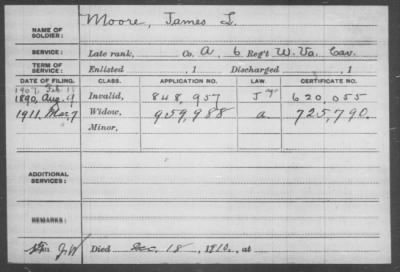 NAME OF SOLDIER: Moore, James L.
SERVICE: Late rank, Co. A, 6 Reg't W. Va. Cav.
TERM OF SERVICE: Enlisted , 1 Discharged , 1
DATE OF FILING. CLASS. APPLICATION NO. LAW. CERTIFICATE NO.
1907, Feb 11
1890, Aug. 9 Invalid, 848,957 J 620,055
1911. Mar, 7 Widow, 959,988 a. 725,790.
Minor,
ADDITIONAL SERVICES:
REMARKS:
Died Dec. 18, 1910, at